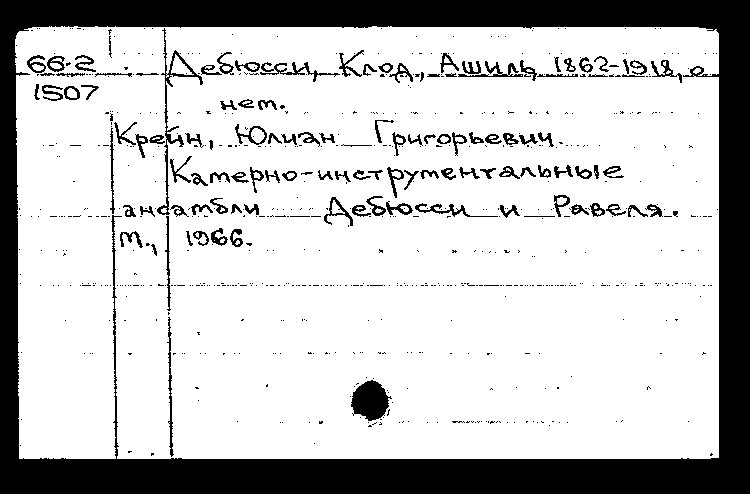 66-2 Дебюсси, Клод, Ашиль, 1862-1918, о
1507 нем.
Крейн, Юлиан Григорьевич.
Камерно-инструментальные
ансамбли Дебюсси и Равеля.
М., 1966.